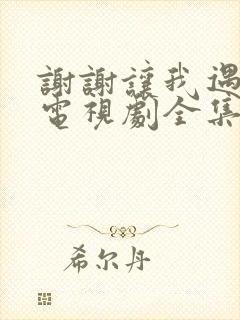 謝謝讓我遇
電視劇全集
希尔丹